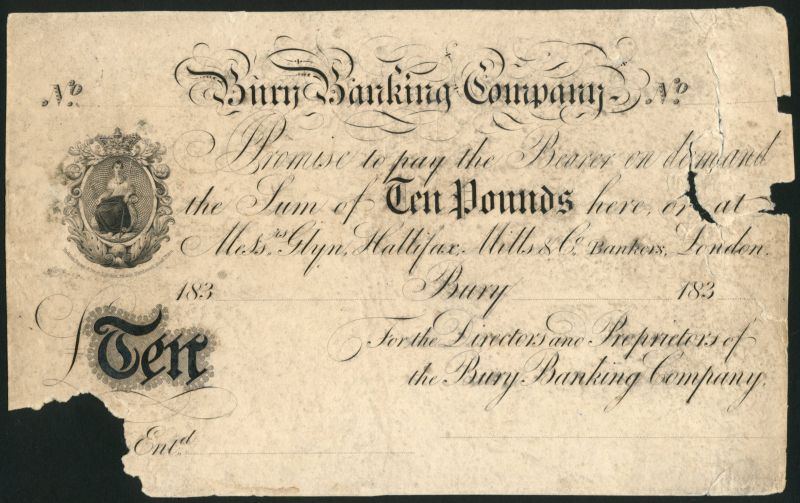 No Bury Banking Company No
I Promise to pay the Bearer on demand
the Sum of Ten Pounds here, or at
Messrs Glyn, Hallifax, Mills & Co. Bankers, London.
183 Bury 183
£ Ten
For the Directors and Proprietors of
the Bury Banking Company.
Entd